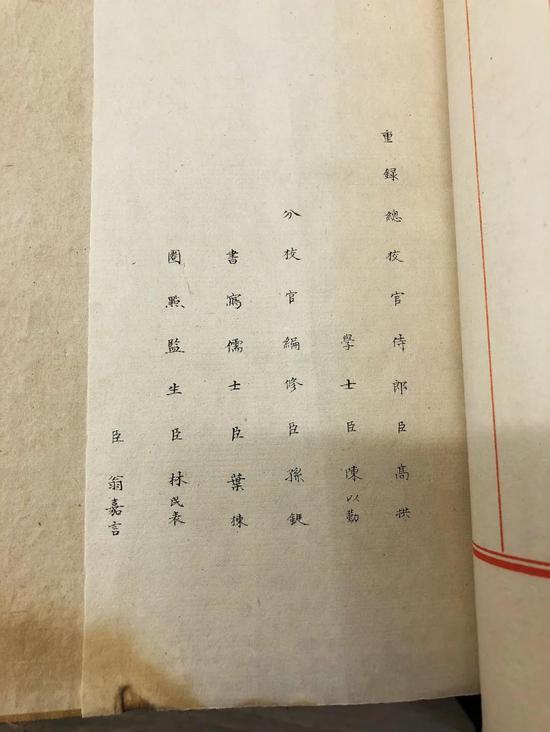 重録總校官侍郎臣髙拱
學士臣陳以勤
分校官編修臣孫鋌
書寫儒士臣葉棟
圈㸃監生臣林民表
臣翁嘉言